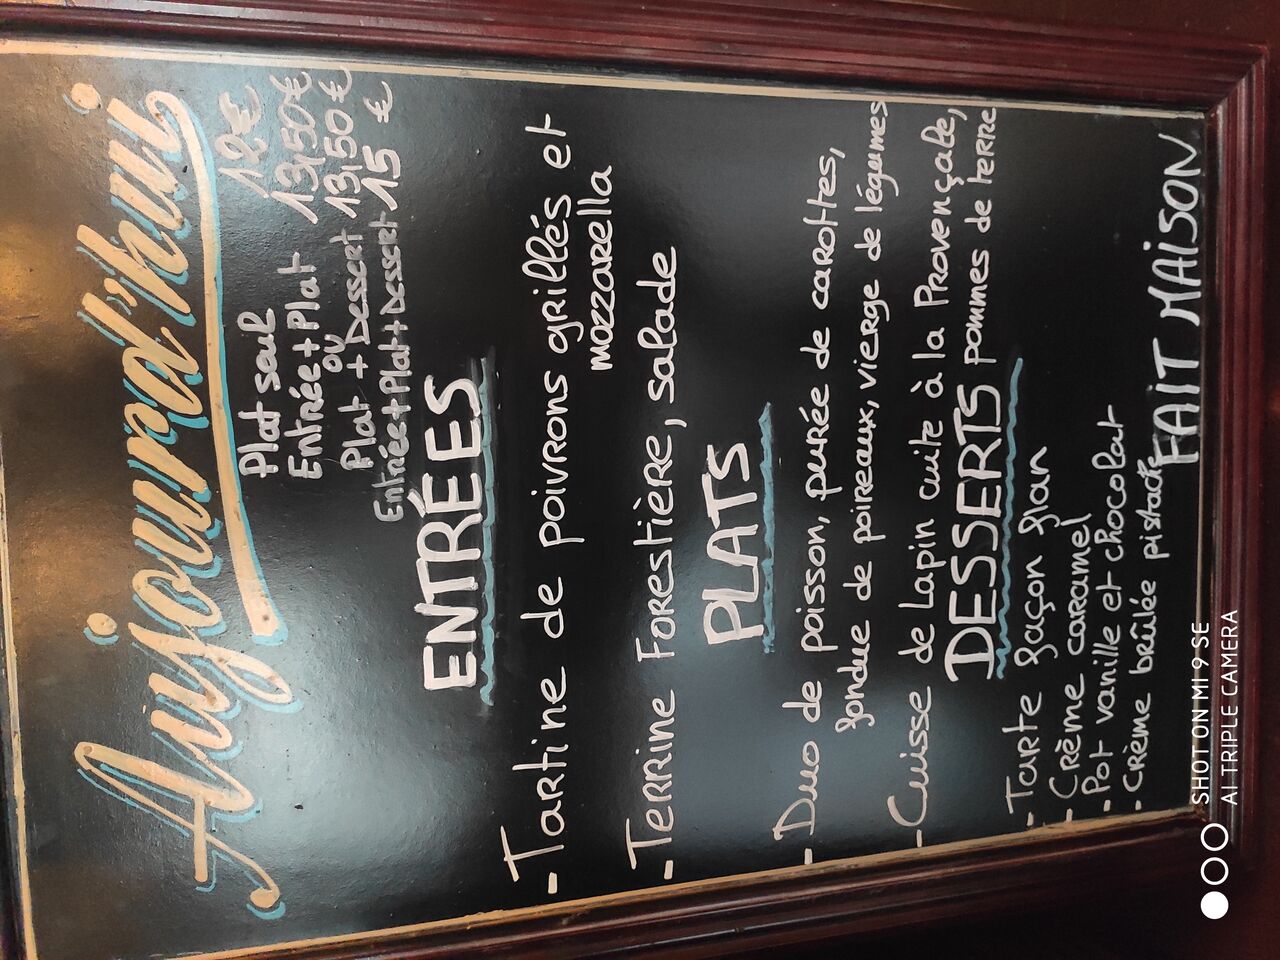 Aujourd'hui
Plat seul 12€
Entrée + Plat 13,50€
ou
Plat + Dessert 13,50€
Entrée + Plat + Dessert 15 €
ENTRÉES
- Tartine de poivrons grillés et
mozzarella
- Terrine Forestière, salade
PLATS
- Duo de poisson, purée de carottes,
fondue de poireaux, vierge de légumes
- Cuisse de Lapin cuite à la Provençale,
pommes de terre
DESSERTS
- Tarte façon flan
- Crème caramel
- Pot vanille et chocolat
- Crème brûlée pistache
FAIT MAISON
SHOT ON MI 9 SE
AI TRIPLE CAMERA